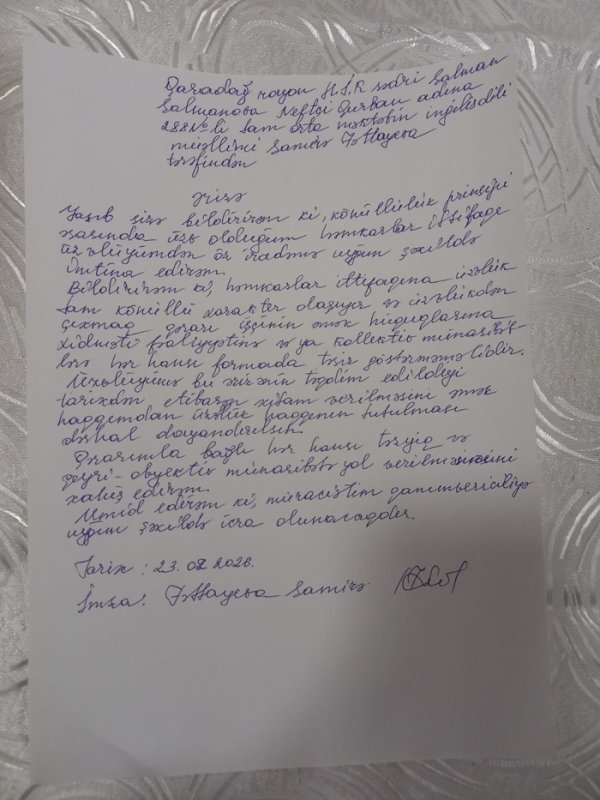 Qaradağ rayon H.İ.K sədri Salman
Salmanova Neftçi Qurban adına
288 №-li tam orta məktəbin ingilis dili
müəllimi Samirə Fəttayeva
tərəfindən
Ərizə
Yazıb sizə bildirirəm ki, könüllülük prinsipi
əsasında üzv olduğum həmkarlar ittifaqı
üzvlüyümdən öz iradəmə uyğun şəkildə
imtina edirəm.
Bildirirəm ki, həmkarlar ittifaqına üzvlük
tam könüllü xarakter daşıyır və üzvlükdən
çıxmaq qərarı işçinin əmək hüquqlarına
xidməti fəaliyyətinə və ya kollektiv münasibət
lərə hər hansı formada təsir göstərməməlidir.
Üzvlüyümə bu ərizənin təqdim edildiyi
tarixdən etibarən xitam verilməsini əmək
haqqımdan üzvlük haqqının tutulması
dərhal dayandırılsın.
Qərarımla bağlı hər hansı təzyiq və
qeyri-obyektiv münasibətə yol verilməməsini
xahiş edirəm.
Ümid edirəm ki, müraciətim qanunvericiliyə
uyğun şəkildə icra olunacaqdır.
Tarix: 23.02.2026.
İmza: Fəttayeva Samirə